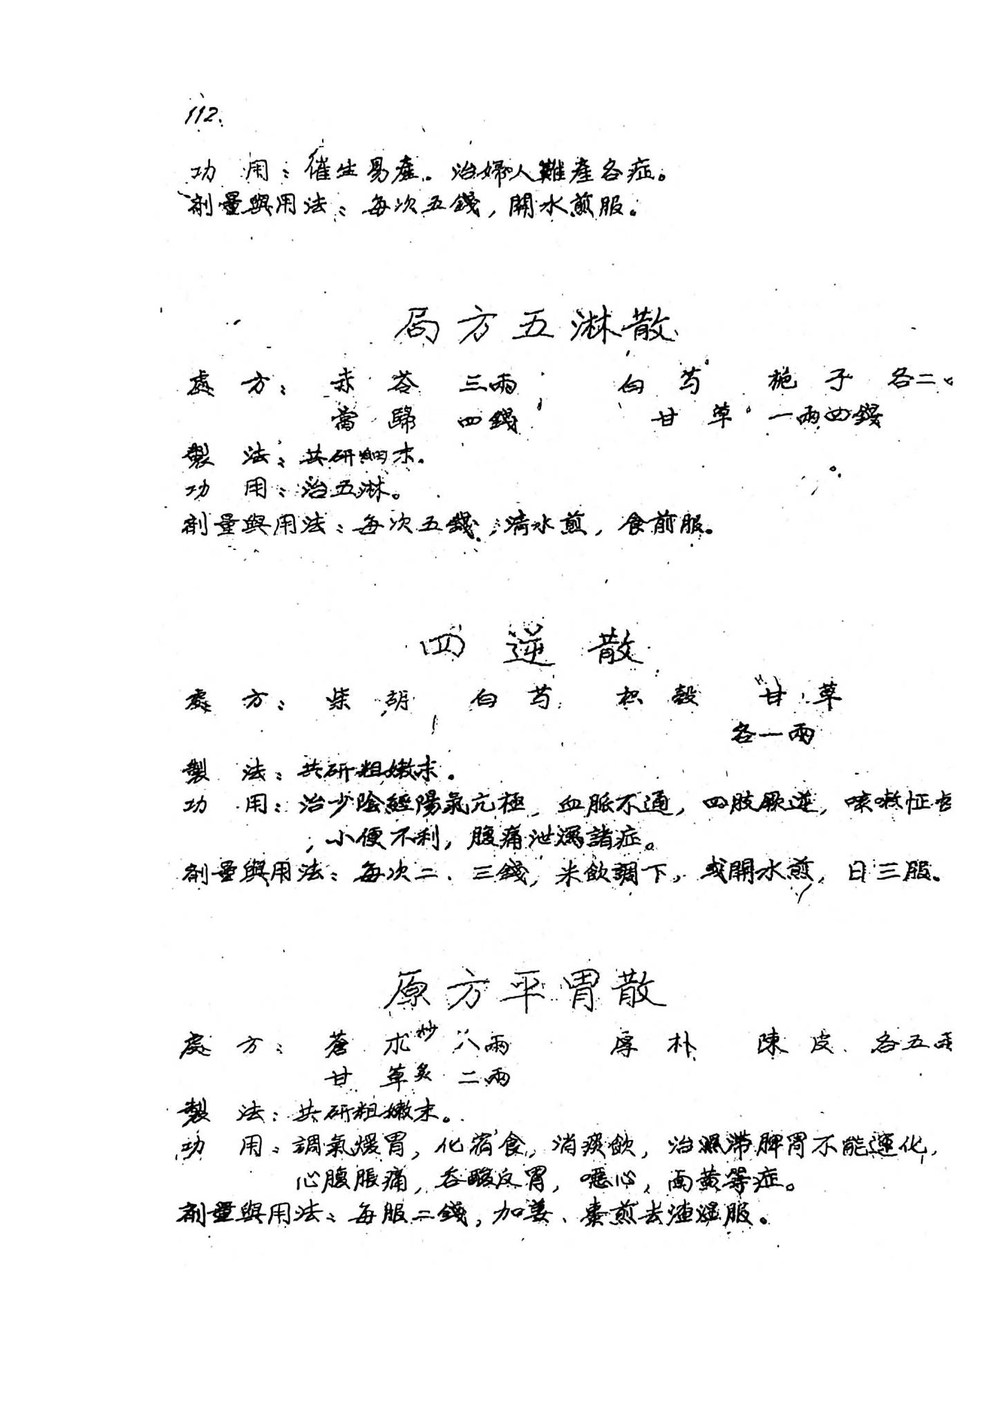 112.
功　用：催生易產。治婦人難產各症。
劑量與用法：每次五錢，開水煎服。
局方五淋散
處　方：赤苓　三兩　白芍　梔子　各二
當歸　四錢　甘草　一兩四錢
製　法：共研細末。
功　用：治五淋。
劑量與用法：每次五錢，清水煎，食前服。
四逆散
處　方：柴胡　白芍　枳殼　甘草
各一兩
製　法：共研粗嫩末。
功　用：治少陰經陽氣亢極，血脈不通，四肢厥逆，咳嗽怔
，小便不利，腹痛泄瀉諸症。
劑量與用法：每次二、三錢，米飲調下，或開水煎，日三服。
原方平胃散
處　方：蒼朮炒　八兩　厚朴　陳皮　各五兩
甘草炙　二兩
製　法：共研粗嫩末。
功　用：調氣煖胃，化宿食，消痰飲，治濕滯脾胃不能運化，
心腹脹痛，吞酸反胃，噁心，面黃等症。
劑量與用法：每服二錢，加姜、棗煎去渣溫服。